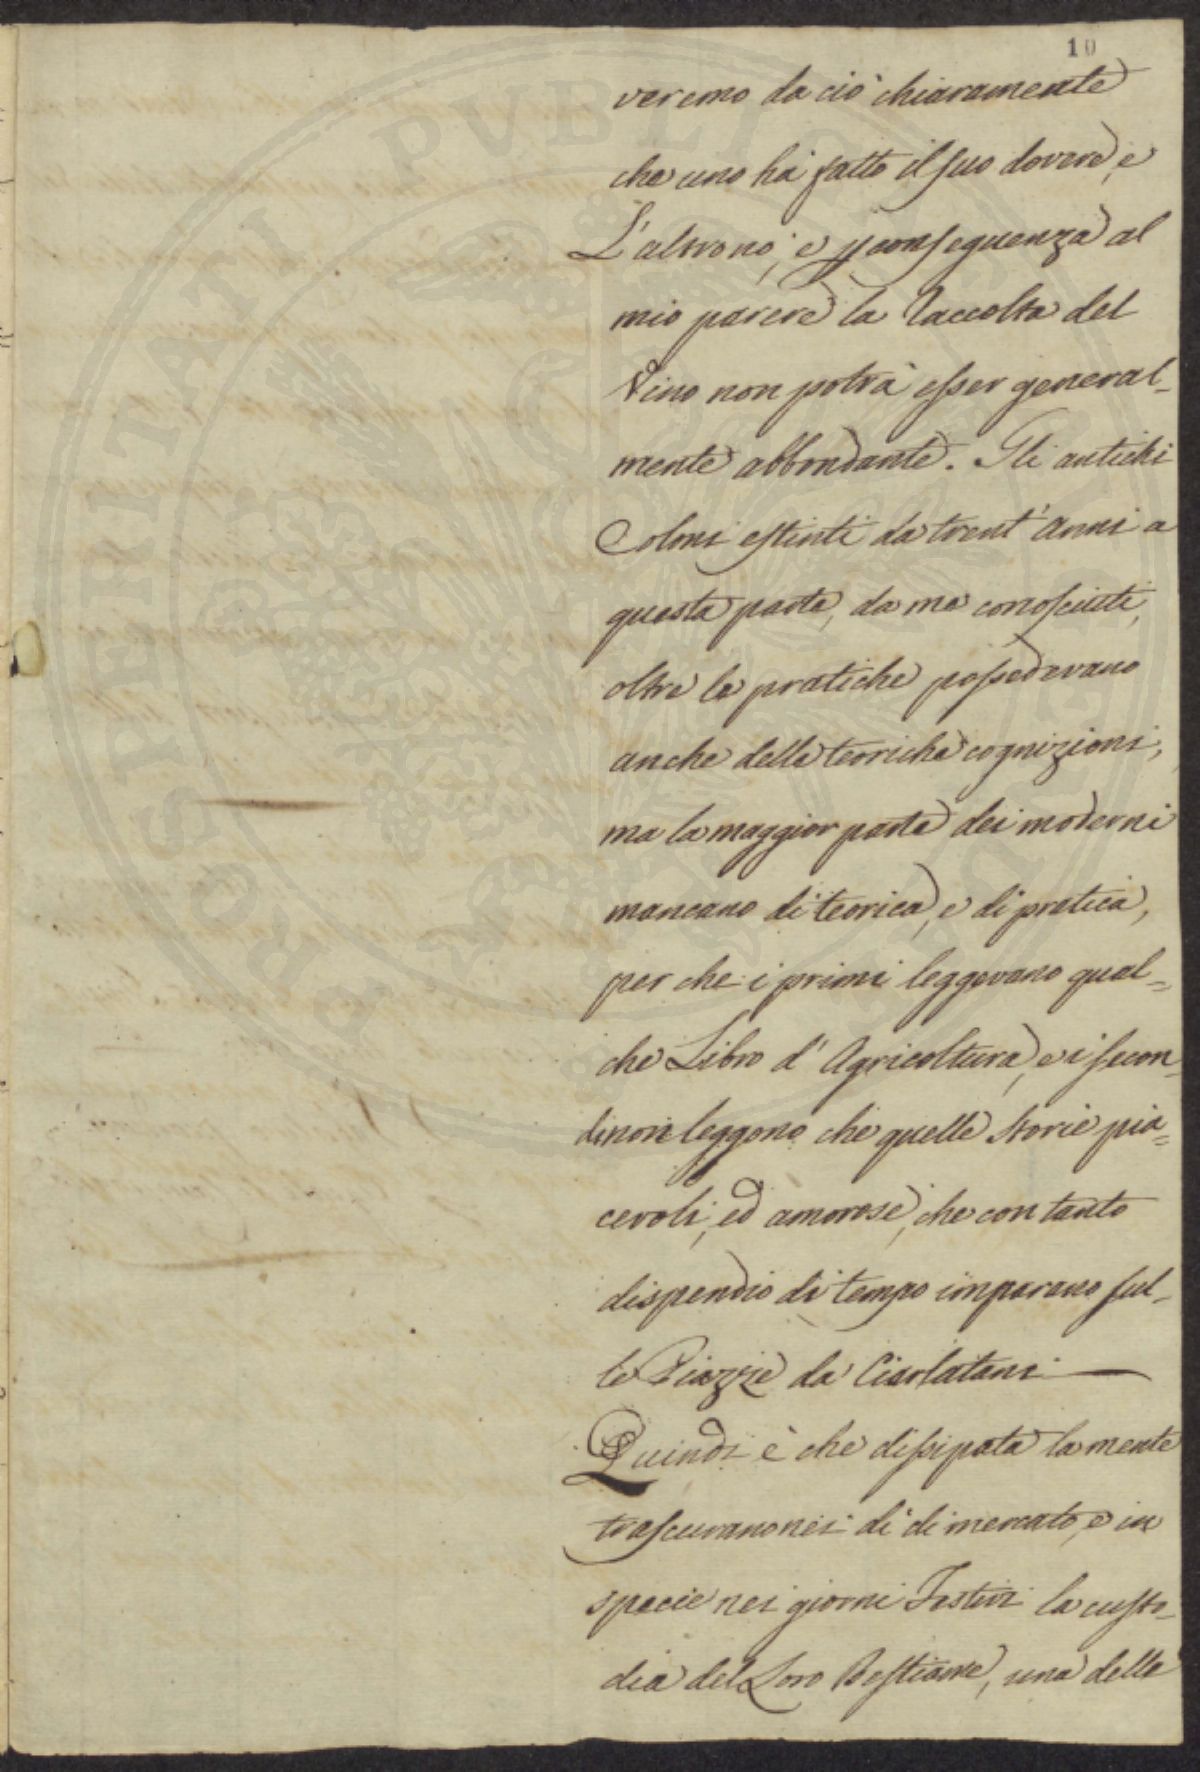 10
veremo da ciò chiaramente
che uno hà fatto il suo dovere, e
L'altro nò; e p conseguenza al
mio parere la Raccolta del
Vino non potrà esser general-
mente abbondante. Gli antichi
Coloni estinti da trent'Anni a
questa parte, da me conosciuti,
oltre le pratiche possedevano
anche delle teoriche cognizioni;
ma la maggior parte dei moderni
mancano di teorica, e di pratica,
per che i primi leggevano qual=
che Libro d'Agricoltura, e i secon-
di non leggono che quelle storie pia=
cevoli, ed amorose, che con tanto
dispendio di tempo imparano sul-
le Piazze da' Ciarlatani —
Quindi è che dissipata la mente
trascurano nei dì di mercato, e in
specie nei giorni Festivi la custo-
dia del Loro Bestiame, una delle
PROSPERITATI PVBLICAE